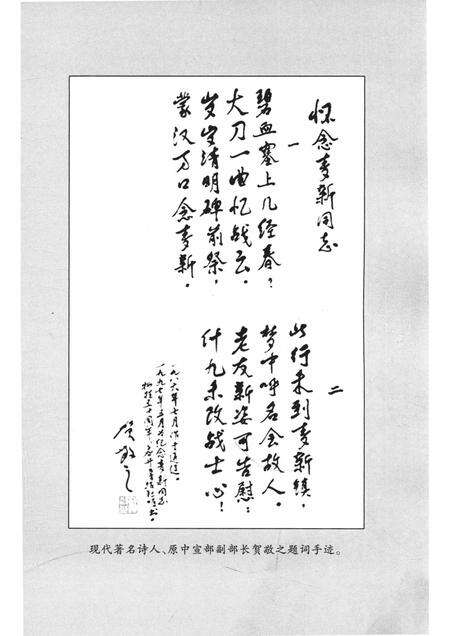 怀念麦新同志
一
碧血塞上几经春？
大刀一曲忆战云。
岁岁清明碑前祭，
蒙汉万口念麦新。
二
此行未到麦新镇，
梦中呼名会故人。
老友新姿可告慰：
什九未改战士心！
一九八六年七月作于通辽。
一九九七年五月为纪念麦新同志
牺牲五十周年，
贺敬之
现代著名诗人、原中宣部副部长贺敬之题词手迹。